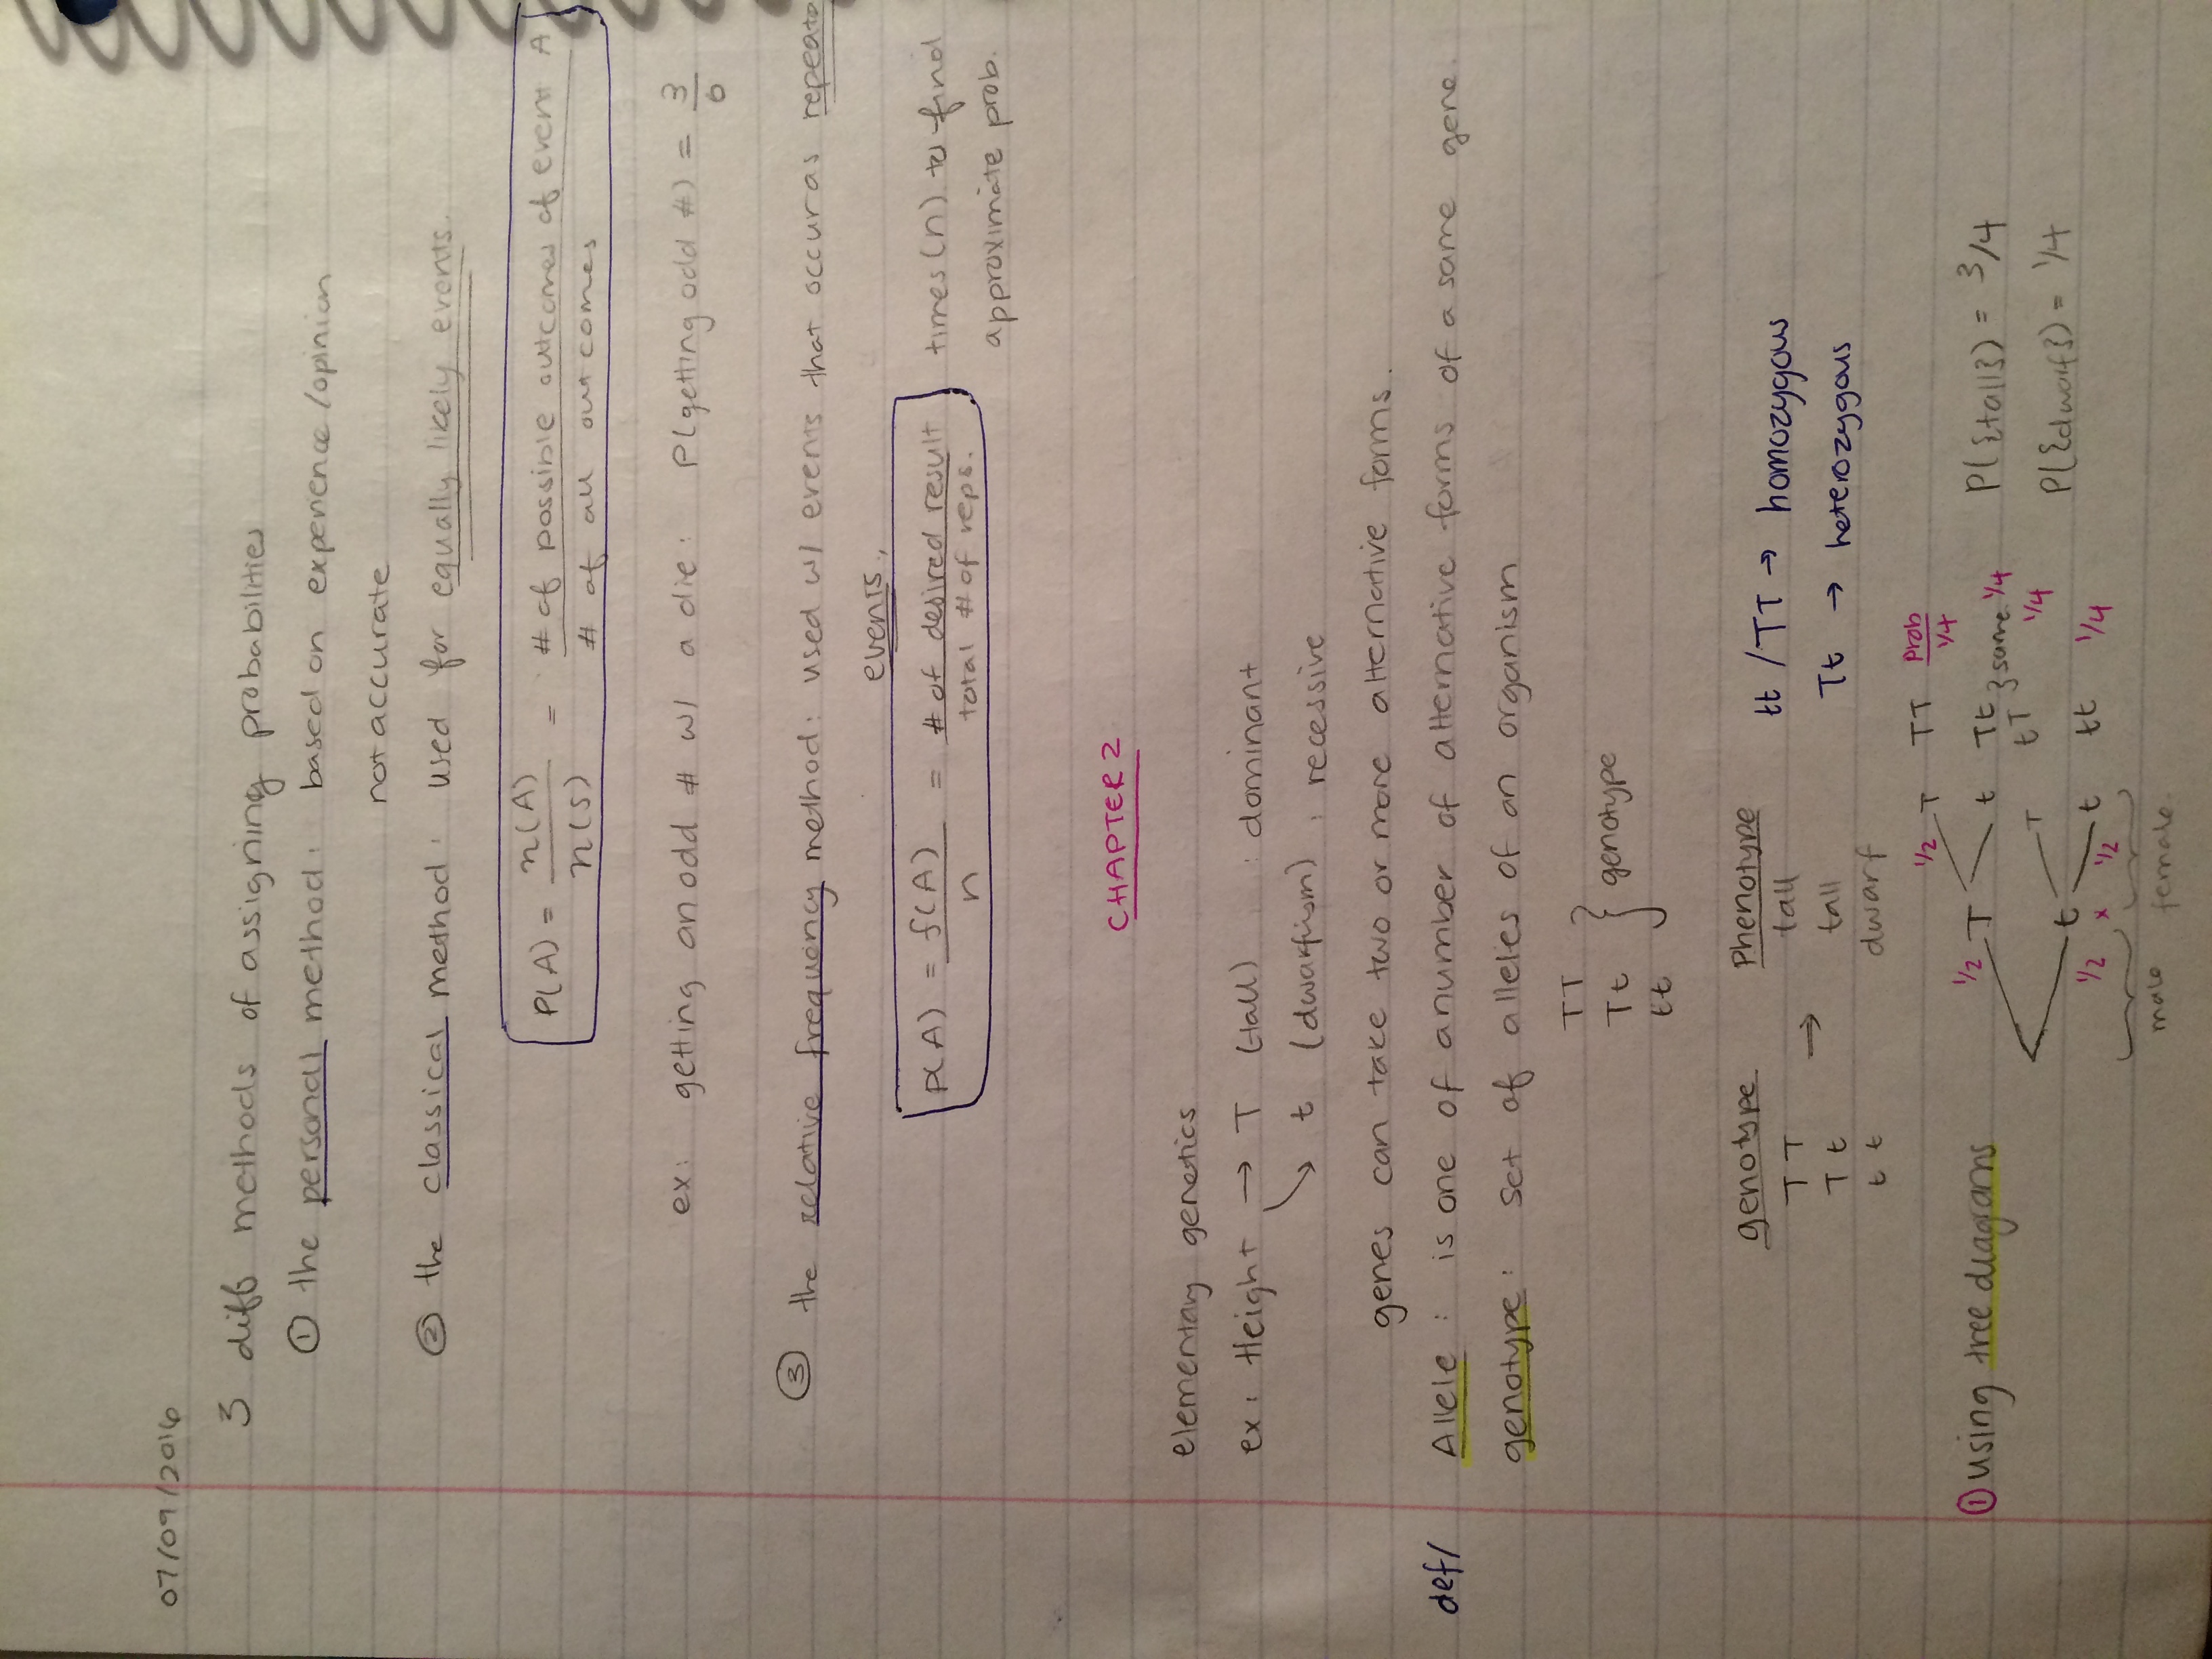 07/09/2016
3 diff methods of assigning probabilities
① the personal method: based on experience/opinion
not accurate
② the classical method: used for equally likely events.
P(A) = n(A)/n(S) = # of possible outcomes of event A / # of all outcomes
ex: getting an odd # w/ a die: P(getting odd #) = 3/6
③ the relative frequency method: used w/ events that occur as
events.
P(A) = f(A)/n = # of desired result / total # of reps. times (n) to find
approximate prob.
CHAPTER 2
elementary genetics
ex: Height → T (tall) : dominant
↘ t (dwarfism) : recessive
genes can take two or more alternative forms.
def/ Allele : is one of a number of alternative forms of a same gene.
genotype : set of alleles of an organism
TT
Tt } genotype
tt
genotype Phenotype tt /TT → homozygous
TT tall
Tt → tall Tt → heterozygous
tt dwarf
prob
1/2 T TT 1/4
① using tree diagrams 1/2 T t Tt } same 1/4 P({tall}) = 3/4
T tT 1/4
1/2 x t 1/2 t tt 1/4 P({dwarf}) = 1/4
male female